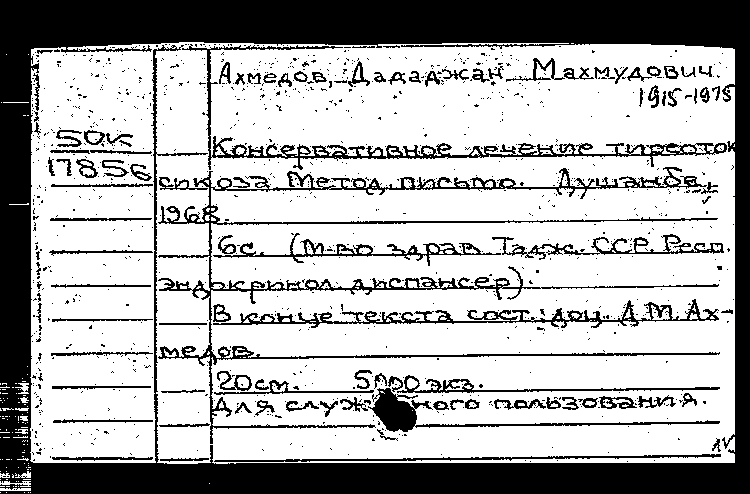 Ахмедов, Дададжан Махмудович.
1915-1975
50к
17856
Консервативное лечение тиреоток
сикоза Метод. письмо. Душанбе,
1968.
6с. (М-во здрав Тадж. ССР. Респ.
эндокринол. диспансер).
В конце текста сост.: доц. Д.М. Ах-
медов.
20см. 5000 экз.
Для служебного пользования.